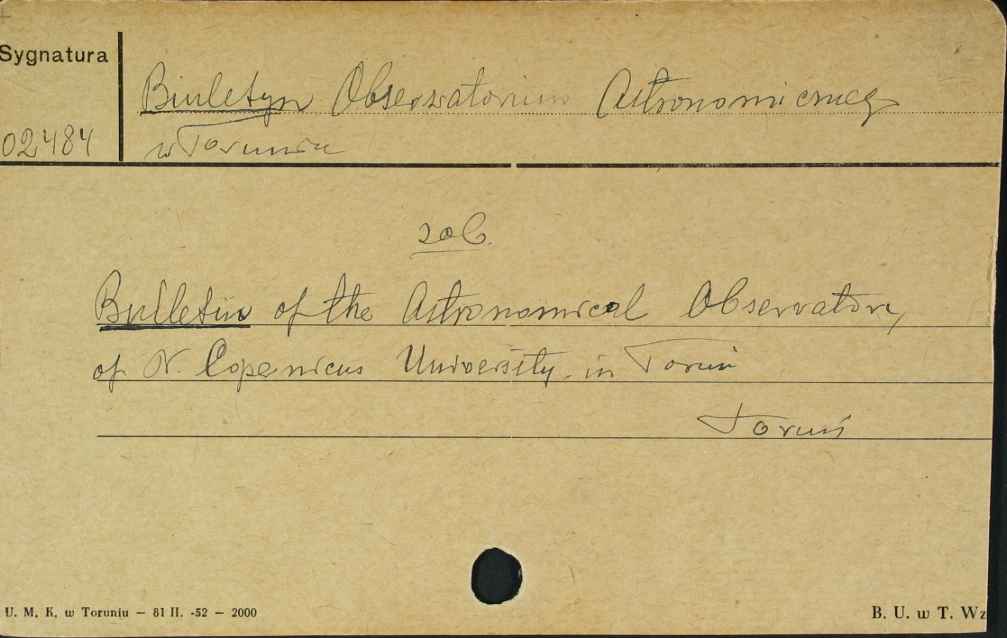 Sygnatura
Biuletyn Obserwatorium Astronomicznego
02484
w Toruniu
zob.
Bulletin of the Astronomical Observatory
of N. Copernicus University in Toruń
Toruń
U. M. K. w Toruniu — 81 II. -52 — 2000
B. U. w T. Wz